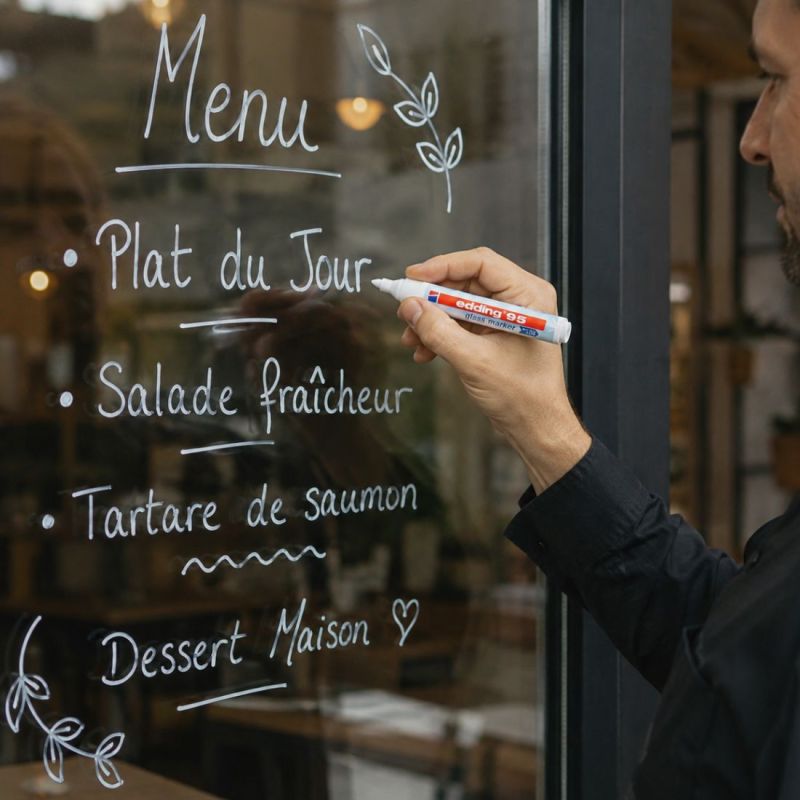 Menu
• Plat du Jour
• Salade fraîcheur
• Tartare de saumon
Dessert Maison ♡
edding 95
glass marker